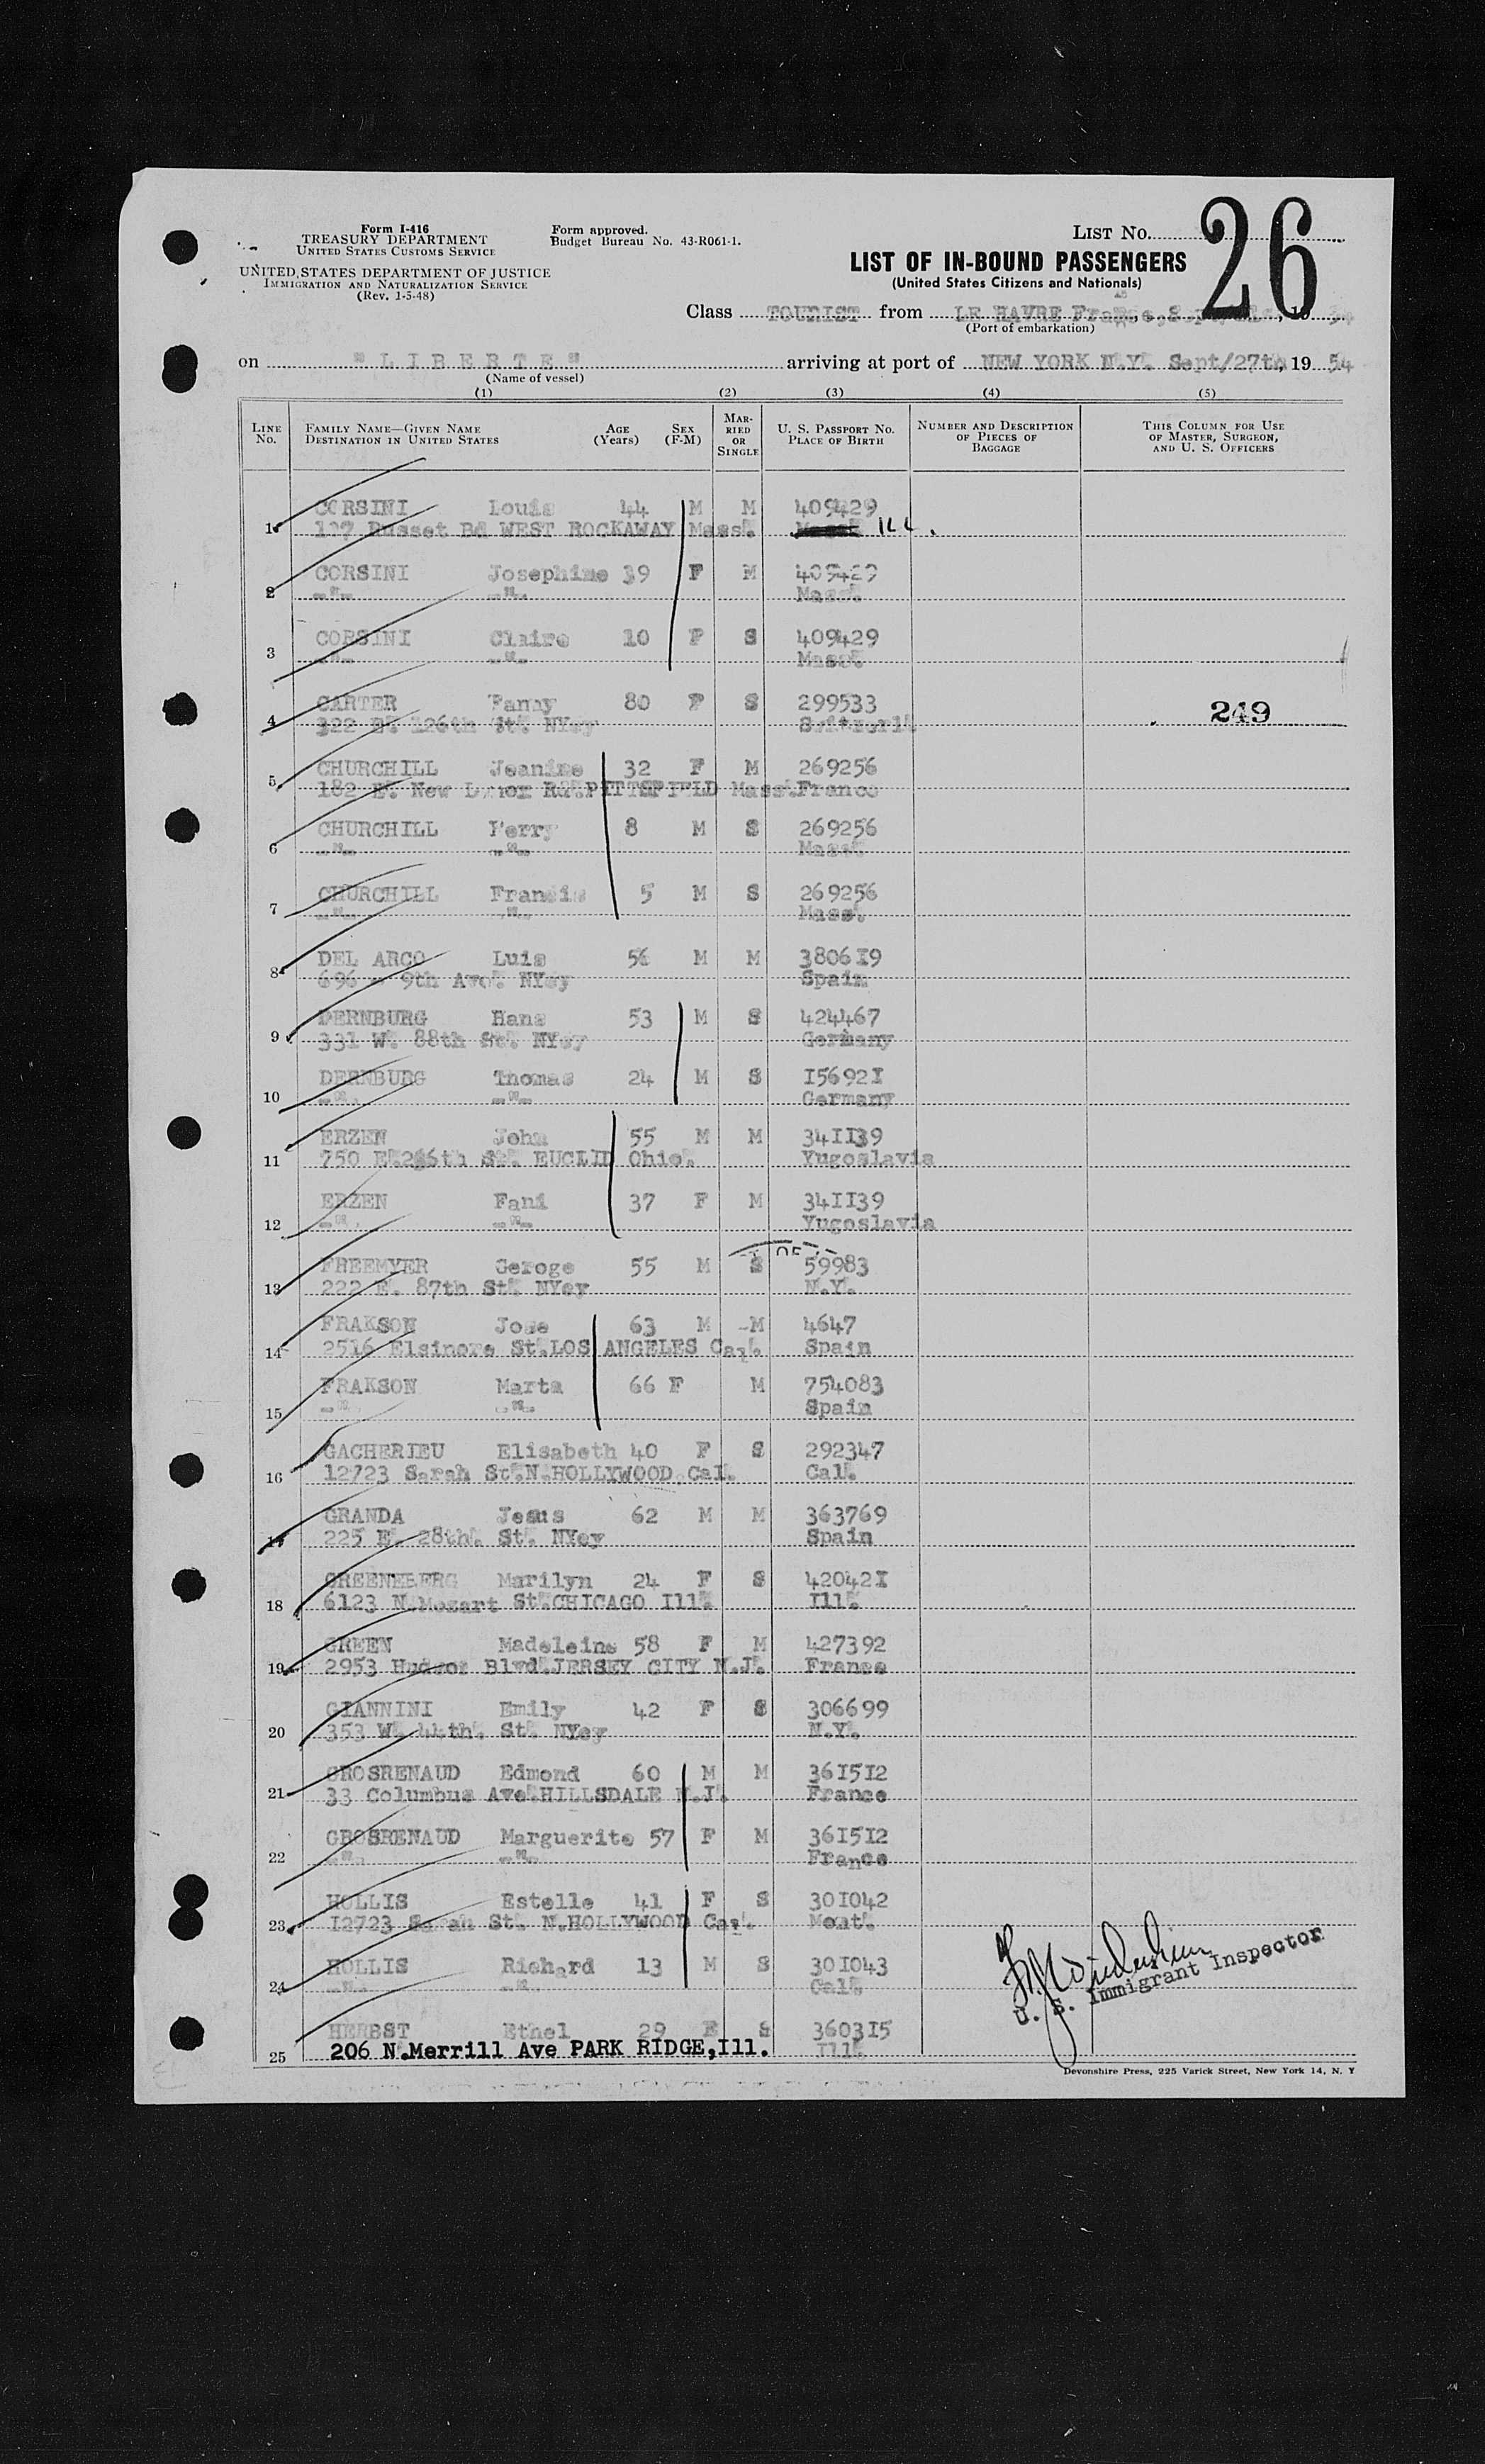 Form I-416
TREASURY DEPARTMENT
UNITED STATES CUSTOMS SERVICE
UNITED STATES DEPARTMENT OF JUSTICE
IMMIGRATION AND NATURALIZATION SERVICE
(Rev. 1-5-48)
Form approved.
Budget Bureau No. 43-R061-1.
LIST NO. 26
LIST OF IN-BOUND PASSENGERS
(United States Citizens and Nationals)
Class TOURIST from LE HAVRE France, 19 54
(Port of embarkation)
on "LIBERTE" arriving at port of NEW YORK N.Y. Sept/27th, 19 54
(Name of vessel)
(1) (2) (3) (4) (5)
LINE NO. FAMILY NAME—GIVEN NAME DESTINATION IN UNITED STATES AGE (Years) SEX (F-M) MARRIED OR SINGLE U. S. PASSPORT NO. PLACE OF BIRTH NUMBER AND DESCRIPTION OF PIECES OF BAGGAGE THIS COLUMN FOR USE OF MASTER, SURGEON, AND U. S. OFFICERS
CORSINI Louis 44 M M 409429
1 Russet Bd WEST ROCKAWAY Mass. ILL.
CORSINI Josephine 39 F M 409429
2 -"- -"- Mass.
CORSINI Claire 10 F S 409429
3 -"- -"- Mass.
CARTER Fanny 80 F S 299533
4 322 E. 126th St. NYey Switzerl. 249
CHURCHILL Jeanine 32 F M 269256
5 182 E. New Lenox Rd. PITTSFIELD Mass. France
CHURCHILL Perry 8 M S 269256
6 -"- -"- Mass.
CHURCHILL Francis 5 M S 269256
7 -"- -"- Mass.
DEL ARCO Luis 56 M M 3806I9
8 696 - 9th Ave. NYey Spain
DERNBURG Hans 53 M S 424467
9 331 W. 88th St. NYey Germany
DERNBURG Thomas 24 M S I5692I
10 -"- -"- Germany
ERZEN John 55 M M 34II39
11 750 E. 236th St. EUCLID Ohio. Yugoslavia
ERZEN Fani 37 F M 34II39
12 -"- -"- Yugoslavia
FREEMYER Geroge 55 M S 59983
13 222 E. 87th St. NYey N.Y.
FRAKSON Jose 63 M -M 4647
14 2516 Elsinore St. LOS ANGELES Cal. Spain
FRAKSON Marta 66 F M 754083
15 -"- -"- Spain
GACHERIEU Elisabeth 40 F S 292347
16 12723 Sarah St. N. HOLLYWOOD Cal. Cal.
GRANDA Jesus 62 M M 363769
17 225 E. 28th. St. NYey Spain
GREENEBERG Marilyn 24 F S 42042I
18 6123 N. Mozart St. CHICAGO Ill. Ill.
GREEN Madeleine 58 F M 427392
19 2953 Hudson Blvd. JERSEY CITY N.J. France
GIANNINI Emily 42 F S 306699
20 353 W. 44th. St. NYey N.Y.
GROSRENAUD Edmond 60 M M 36I5I2
21 33 Columbus Ave. HILLSDALE N.J. France
GROSRENAUD Marguerite 57 F M 36I5I2
22 -"- -"- France
HOLLIS Estelle 41 F S 30I042
23 I2723 Sarah St. N. HOLLYWOOD Cal. Mont.
HOLLIS Richard 13 M S 30I043
24 -"- -"- Cal.
U. S. Immigrant Inspector
HERBST Ethel 29 F S 3603I5
25 206 N. Merrill Ave PARK RIDGE, Ill. Ill.
Devonshire Press, 225 Varick Street, New York 14, N. Y